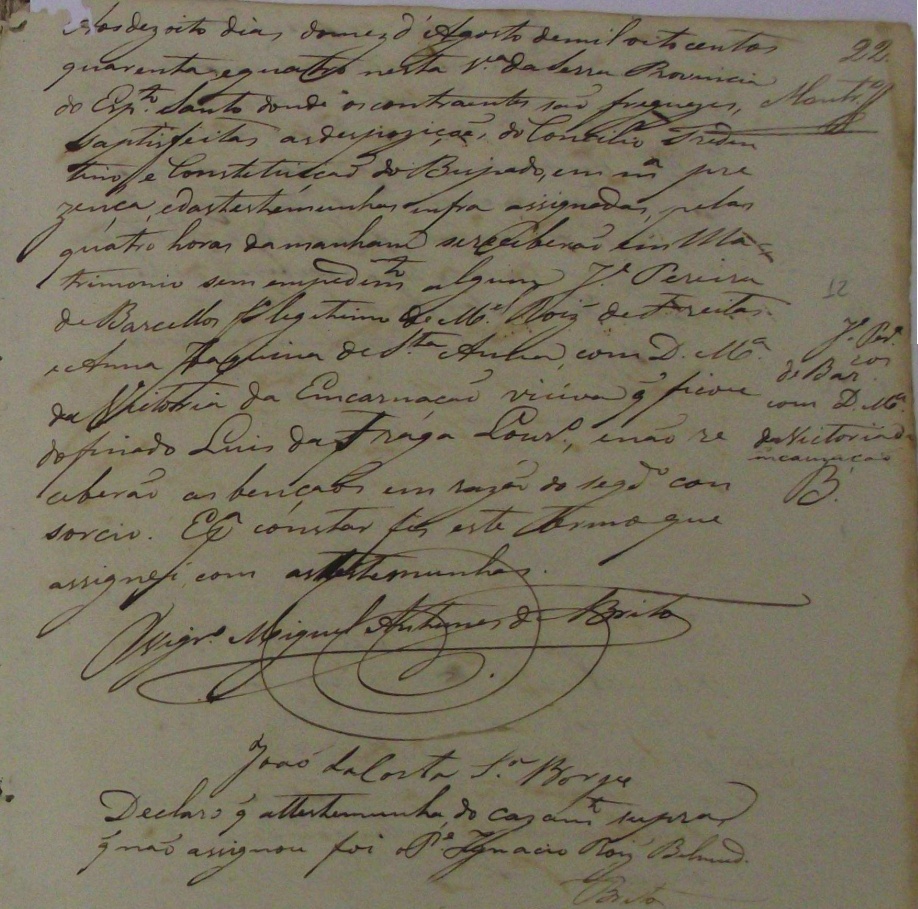 Aos dezoito dias domez d'Agosto demil oito centos
quarenta equatro nesta Vª da Serra Provincia
do Espto. Santo donde os contraentes são freguezes,
Saptisfeitas as despoziçoẽs, do Concilio Triden
tino, e Constetuiçaõ do Bispado, em mª pre
zença, edastestemunhas infra assignadas, pelas
quatro horas damanham sereceberaõ em Ma-
trimonio sem empedimto algum Je. Pereira
de Barcellos fo. legitimo de Mel. Roiz de Freitas
e Anna Joaquina de Sta. Anna, com D. Mª
da Victoria da Encarnação viúva q̃ ficou
dofinado Luis da Fraga Lour.o, enaõ re
ceberaõ as bençaõs em razaõ do segdo. con
sorcio. E pª constar fis este termo que
assignei com astestemunhas.
Vigro. Miguel Antunes de Brito
João da Costa Sª Borge
Declaro q̃ atestemunha, do cazamto supra
q̃ naõ assignou foi o Pe. Ignacio Roiz
Brito
22
12
Je. Per.
de Bar
cos
com D. Mª
da Victoria d
incarnação
B.